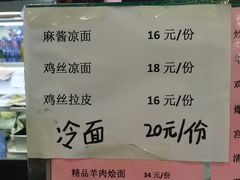 麻酱凉面 16 元/份
鸡丝凉面 18 元/份
鸡丝拉皮 16 元/份
冷面 20元/份
精品羊肉烩面 34 元/份